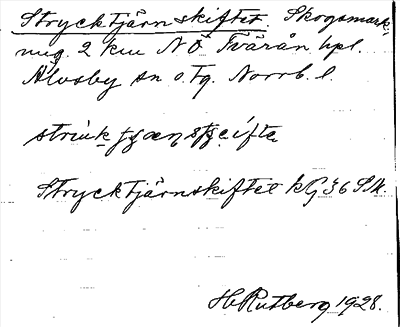 Strycktjärnskiftet. Skogsmark,
2 km NÖ Tvärån hpl.
Älvsby sn o. tg. Norrb. l.
Strycktjärnskiftet kG 36 Sk.
H. Rutberg 1928.